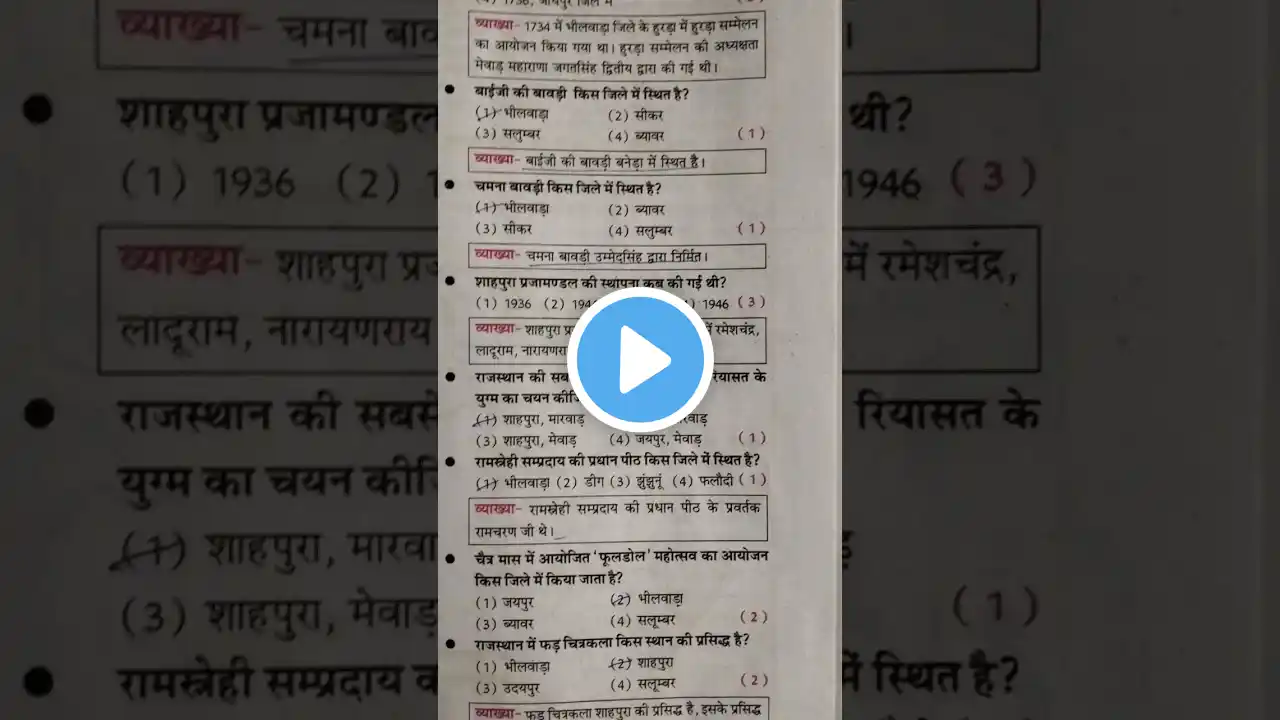 व्याख्या- 1734 में भीलवाड़ा जिले के हुरड़ा में हुरड़ा सम्मेलन
का आयोजन किया गया था। हुरड़ा सम्मेलन की अध्यक्षता
मेवाड़ महाराणा जगतसिंह द्वितीय द्वारा की गई थी।
बाईजी की बावड़ी किस जिले में स्थित है?
(1) भीलवाड़ा (2) सीकर
(3) सलुम्बर (4) ब्यावर (1)
व्याख्या- बाईजी की बावड़ी बनेड़ा में स्थित है।
चमना बावड़ी किस जिले में स्थित है?
(1) भीलवाड़ा (2) ब्यावर
(3) सीकर (4) सलुम्बर (1)
व्याख्या- चमना बावड़ी उम्मेदसिंह द्वारा निर्मित।
शाहपुरा प्रजामण्डल की स्थापना कब की गई थी?
(1) 1936 (2) 1946 (3)
व्याख्या- शाहपुरा में रमेशचंद्र,
लादूराम,
राजस्थान की रियासत के
युग्म का चयन
(1) शाहपुरा, मारवाड़
(3) शाहपुरा, मेवाड़ (4) जयपुर, मेवाड़ (1)
रामस्नेही सम्प्रदाय की प्रधान पीठ किस जिले में स्थित है?
(1) भीलवाड़ा (2) डीग (3) झुंझुनूं (4) फलौदी (1)
व्याख्या- रामस्नेही सम्प्रदाय की प्रधान पीठ के प्रवर्तक
रामचरण जी थे।
चैत्र मास में आयोजित 'फूलडोल' महोत्सव का आयोजन
किस जिले में किया जाता है?
(1) जयपुर (2) भीलवाड़ा
(3) ब्यावर (4) सलूम्बर (2)
राजस्थान में फड़ चित्रकला किस स्थान की प्रसिद्ध है?
(1) भीलवाड़ा (2) शाहपुरा
(3) उदयपुर (4) सलूम्बर (2)
व्याख्या- फड़ चित्रकला शाहपुरा की प्रसिद्ध है, इसके प्रसिद्ध